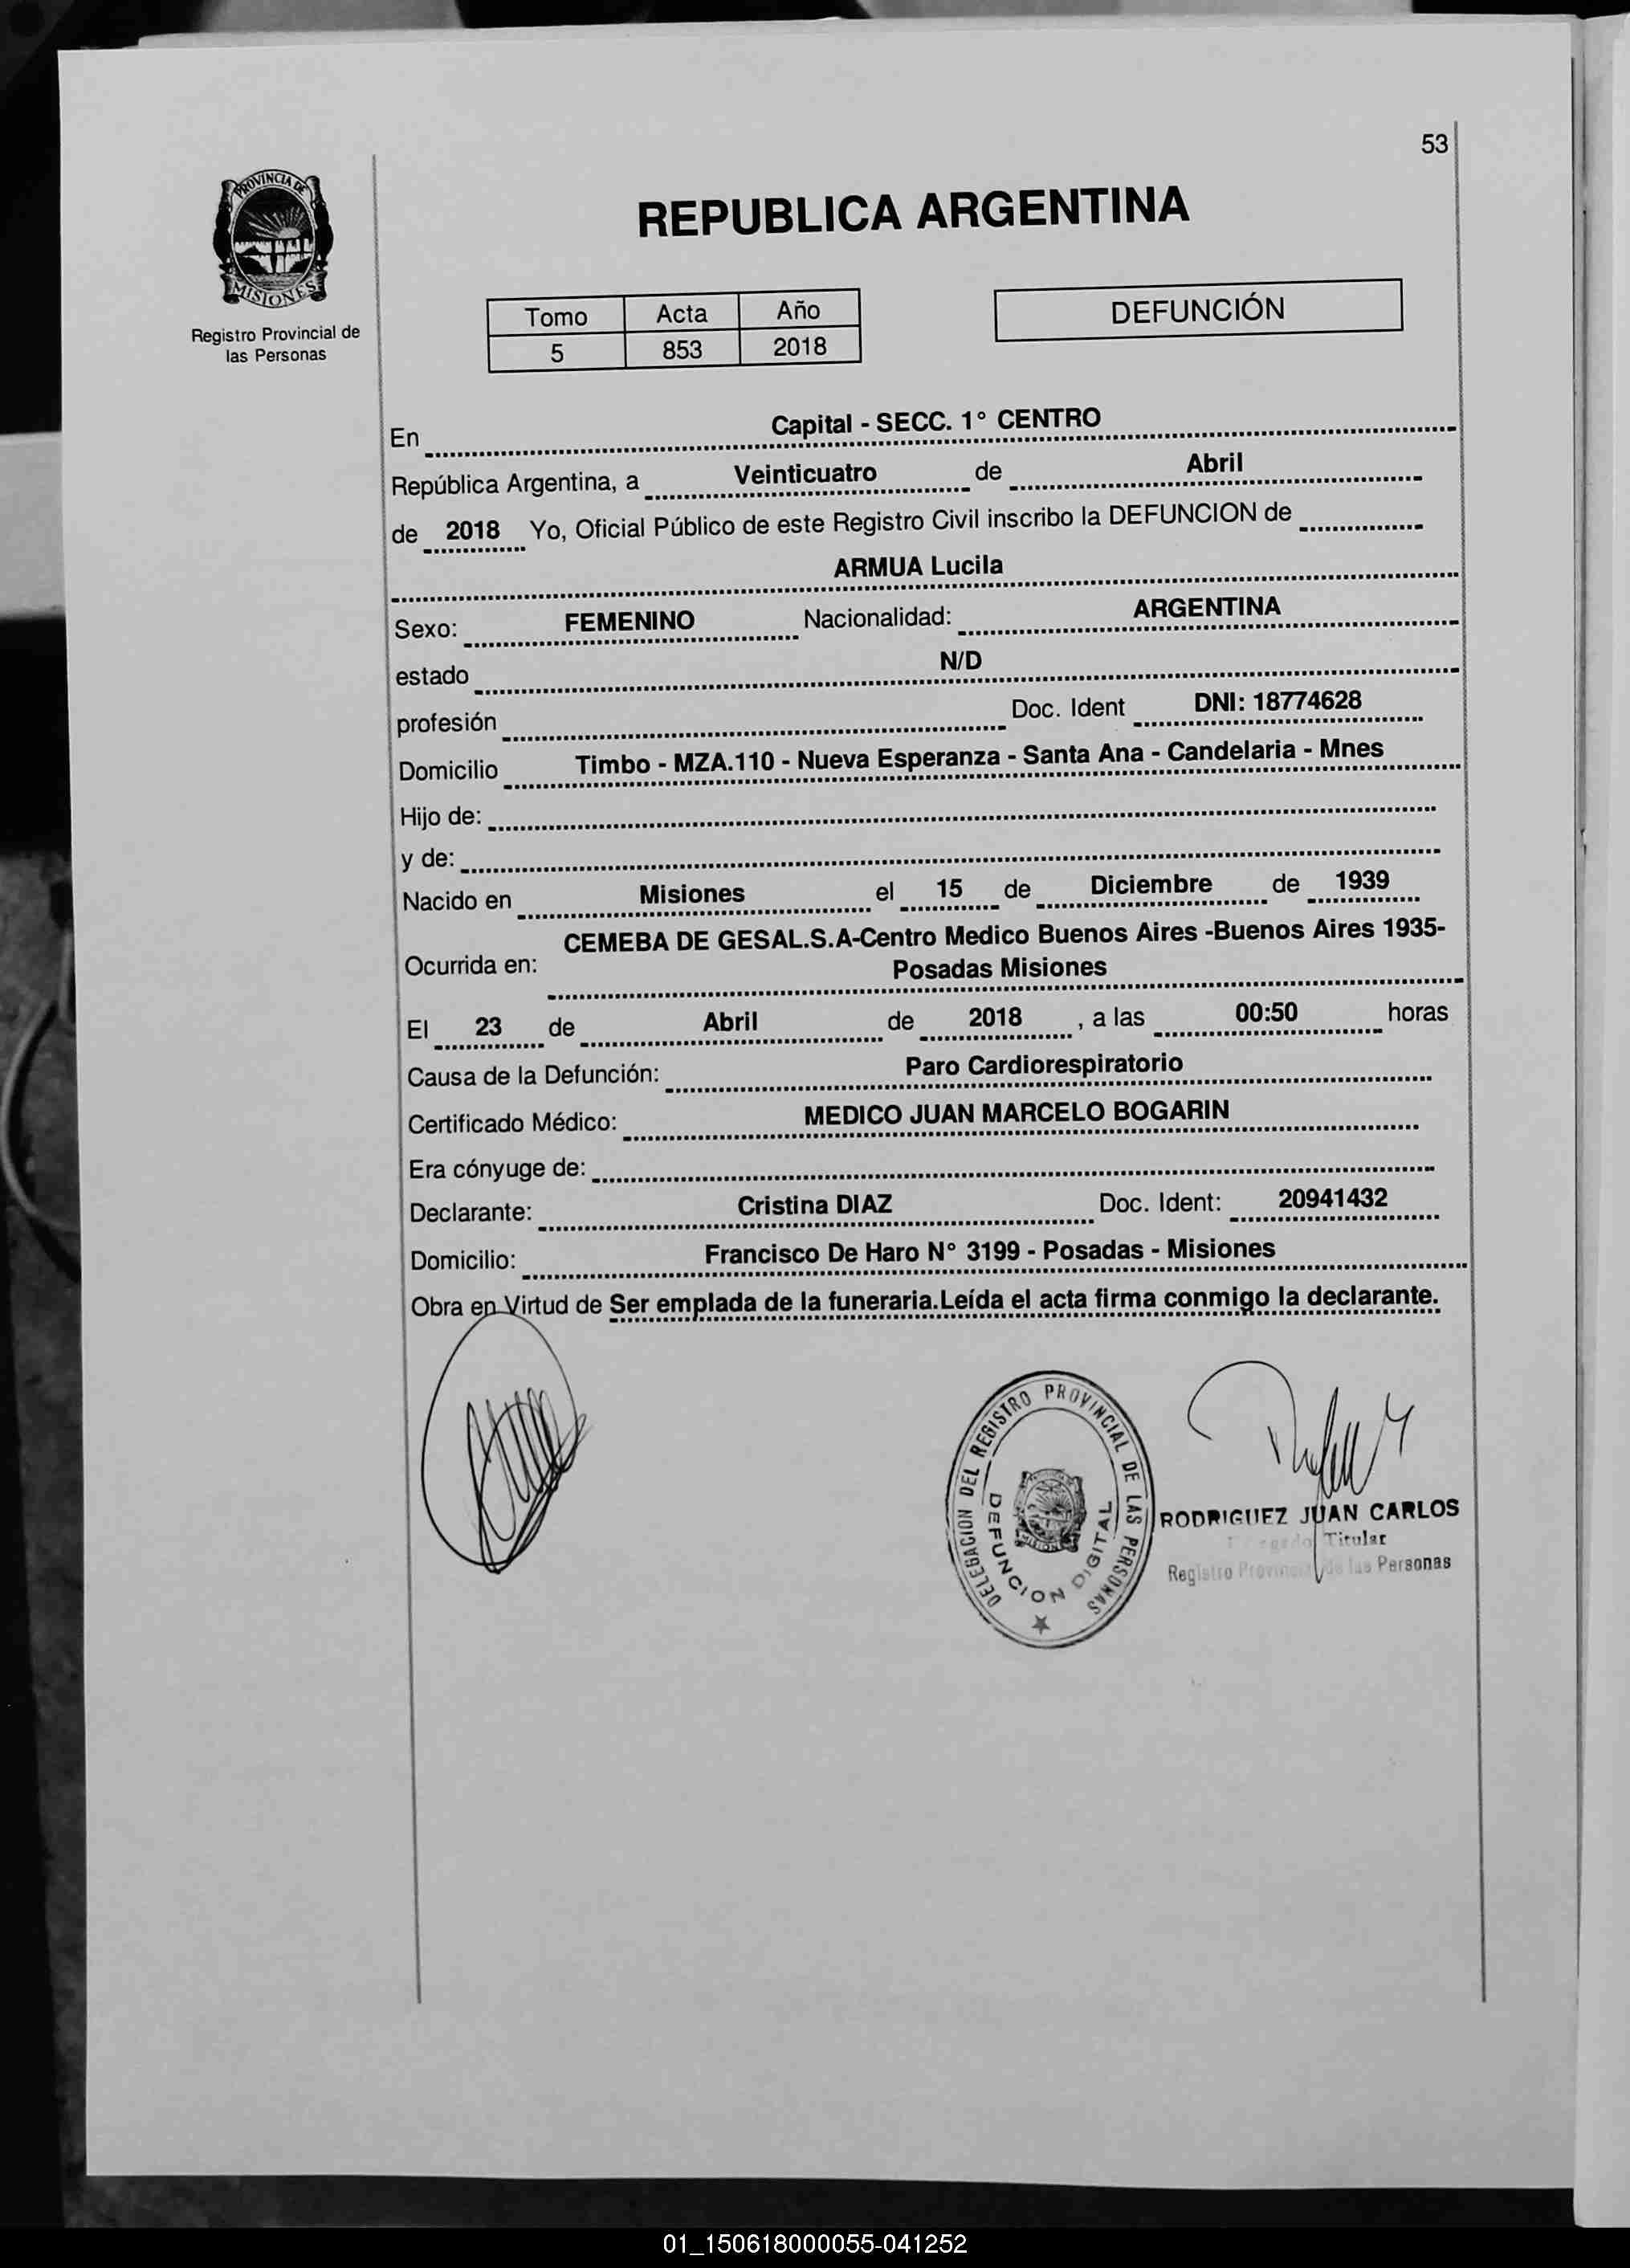 53
PROVINCIA DE
MISIONES
Registro Provincial de
las Personas
REPUBLICA ARGENTINA
Tomo Acta Año
5 853 2018
DEFUNCIÓN
En Capital - SECC. 1° CENTRO
República Argentina, a Veinticuatro de Abril
de 2018 Yo, Oficial Público de este Registro Civil inscribo la DEFUNCION de
ARMUA Lucila
Sexo: FEMENINO Nacionalidad: ARGENTINA
estado N/D
profesión Doc. Ident DNI: 18774628
Domicilio Timbo - MZA.110 - Nueva Esperanza - Santa Ana - Candelaria - Mnes
Hijo de:
y de:
Nacido en Misiones el 15 de Diciembre de 1939
CEMEBA DE GESAL.S.A-Centro Medico Buenos Aires -Buenos Aires 1935-
Ocurrida en: Posadas Misiones
El 23 de Abril de 2018 , a las 00:50 horas
Causa de la Defunción: Paro Cardiorespiratorio
Certificado Médico: MEDICO JUAN MARCELO BOGARIN
Era cónyuge de:
Declarante: Cristina DIAZ Doc. Ident: 20941432
Domicilio: Francisco De Haro N° 3199 - Posadas - Misiones
Obra en Virtud de Ser emplada de la funeraria.Leída el acta firma conmigo la declarante.
DELEGACION DEL REGISTRO PROVINCIAL DE LAS PERSONAS
DEFUNCION DIGITAL
RODRIGUEZ JUAN CARLOS
Titular
Registro Provincial de las Personas
01_150618000055-041252